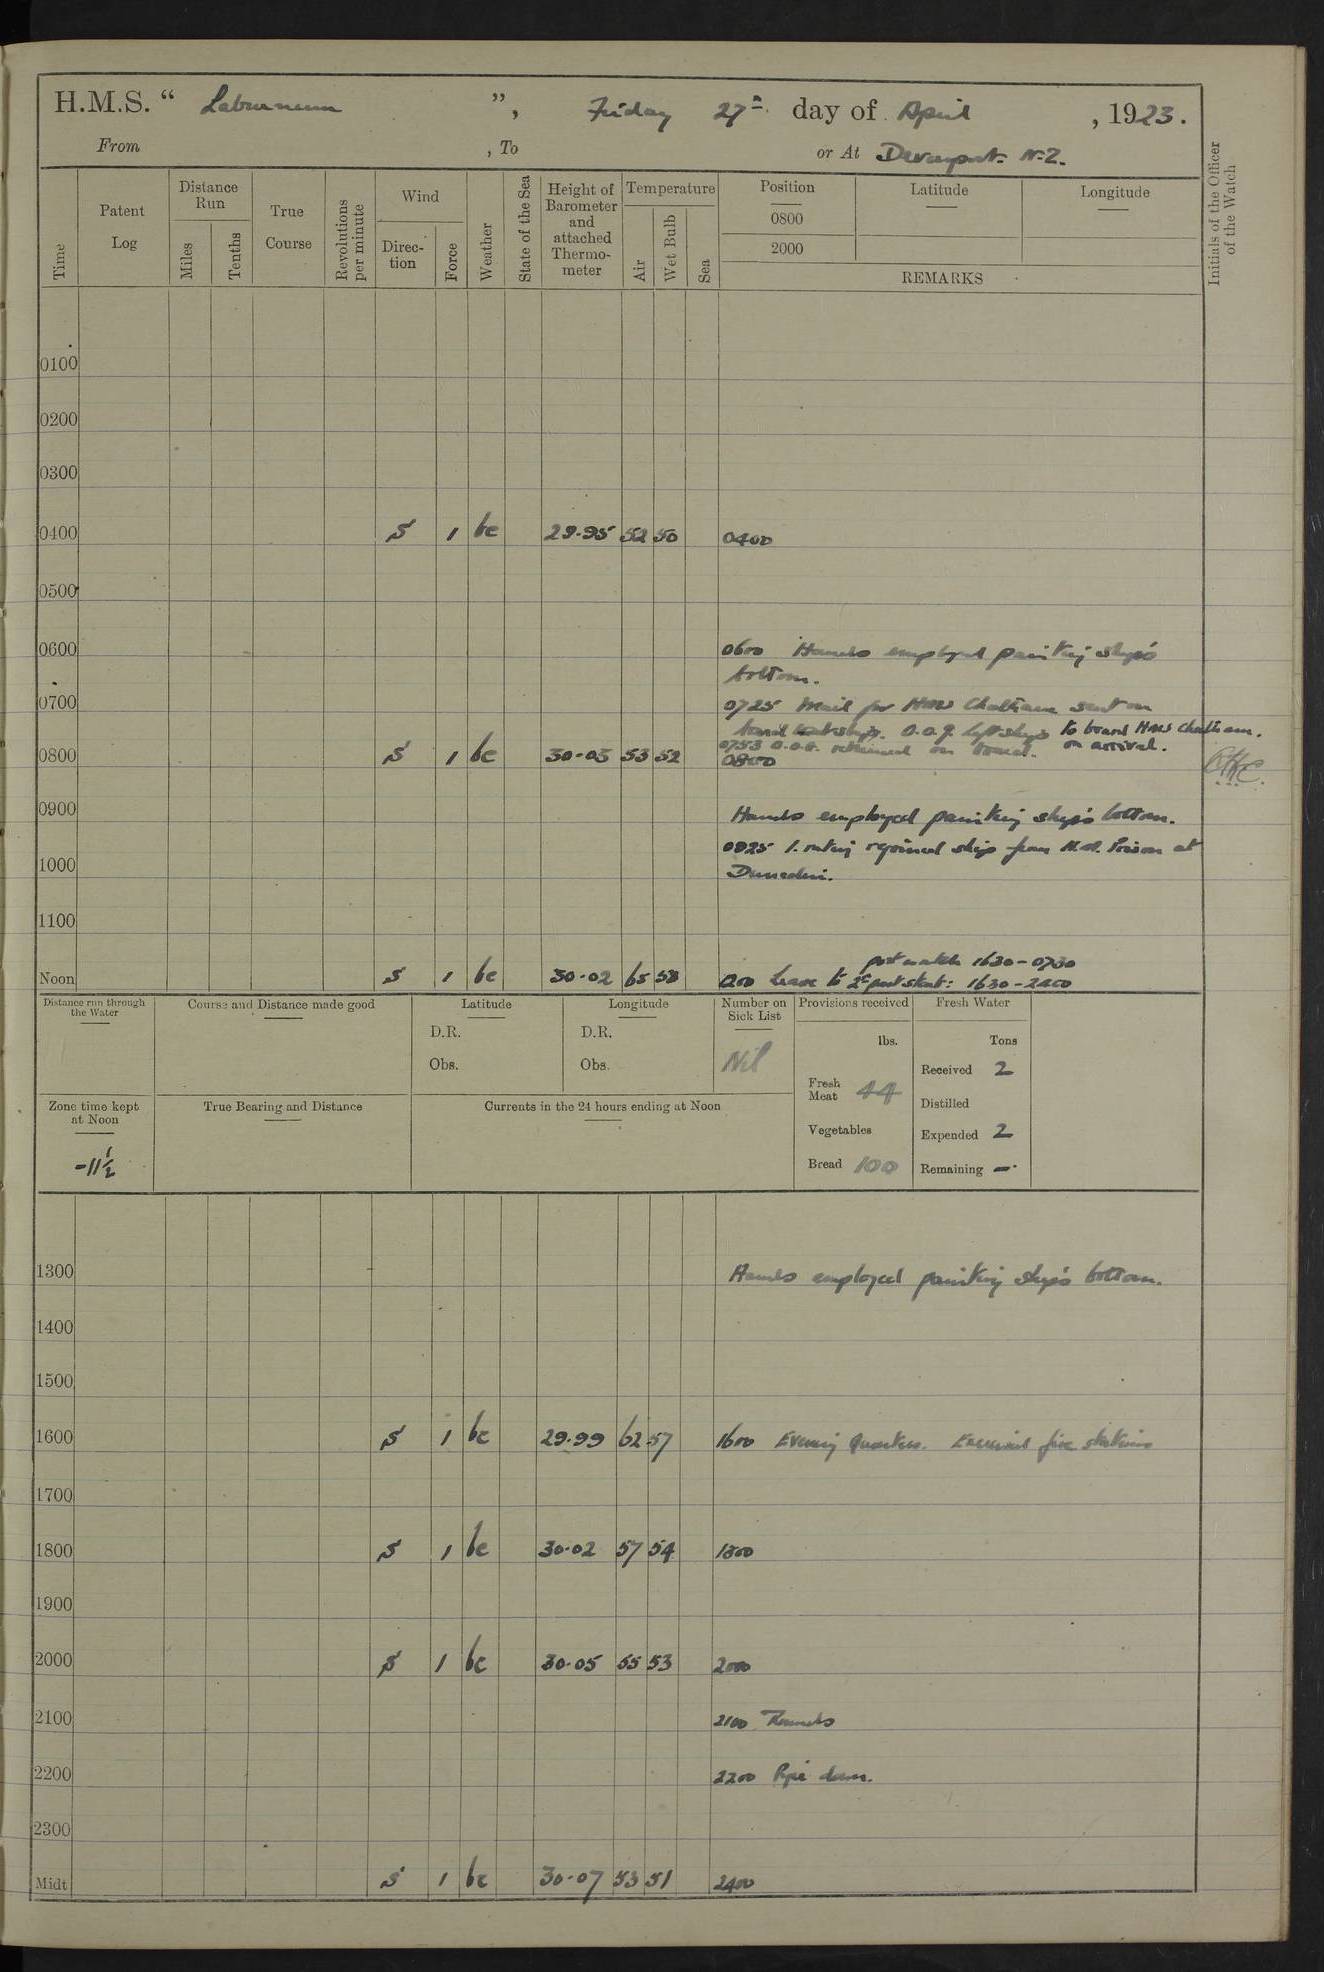 H.M.S. “ Laburnum ”, Friday 27th day of April , 1923.
From , To or At Devonport. N.Z.
Time
Patent Log
Distance Run
Miles
Tenths
True Course
Revolutions per minute
Wind
Direc-tion
Force
Weather
State of the Sea
Height of Barometer and attached Thermo-meter
Temperature
Air
Wet Bulb
Sea
Position
0800
2000
Latitude
Longitude
REMARKS
Initials of the Officer of the Watch
0100
0200
0300
0400 S 1 bc 29.95 52 50 0400
0500
0600 0600 Hands employed painting ship's
bottom.
0700 0725 Mail for HMS Chatham sent on
O.O.G. left ship to board HMS Chatham.
0753 O.O.G. returned on board. on arrival.
0800 S 1 bc 30.03 53 52 0800
0900 Hands employed painting ship's bottom.
0925 1 rating rejoined ship from H.M. Prison at
1000 Dunedin.
1100
port watch 1630-0730
Noon S 1 bc 30.02 65 58 1200 Leave to 2nd part starb: 1630-2400
Distance run through the Water
Course and Distance made good
Latitude
D.R.
Obs.
Longitude
D.R.
Obs.
Number on Sick List
Nil
Provisions received
lbs.
Fresh Meat 44
Vegetables
Bread 100
Fresh Water
Tons
Received 2
Distilled
Expended 2
Remaining -
Zone time kept at Noon
-11½
True Bearing and Distance
Currents in the 24 hours ending at Noon
1300 Hands employed painting ship's bottom.
1400
1500
1600 S 1 bc 29.99 62 57 1600 Evening Quarters. Exercised fire stations
1700
1800 S 1 bc 30.02 57 54 1800
1900
2000 S 1 bc 30.05 55 53 2000
2100 2100 Rounds
2200 2200 Pipe down.
2300
Midt S 1 bc 30.07 53 51 2400